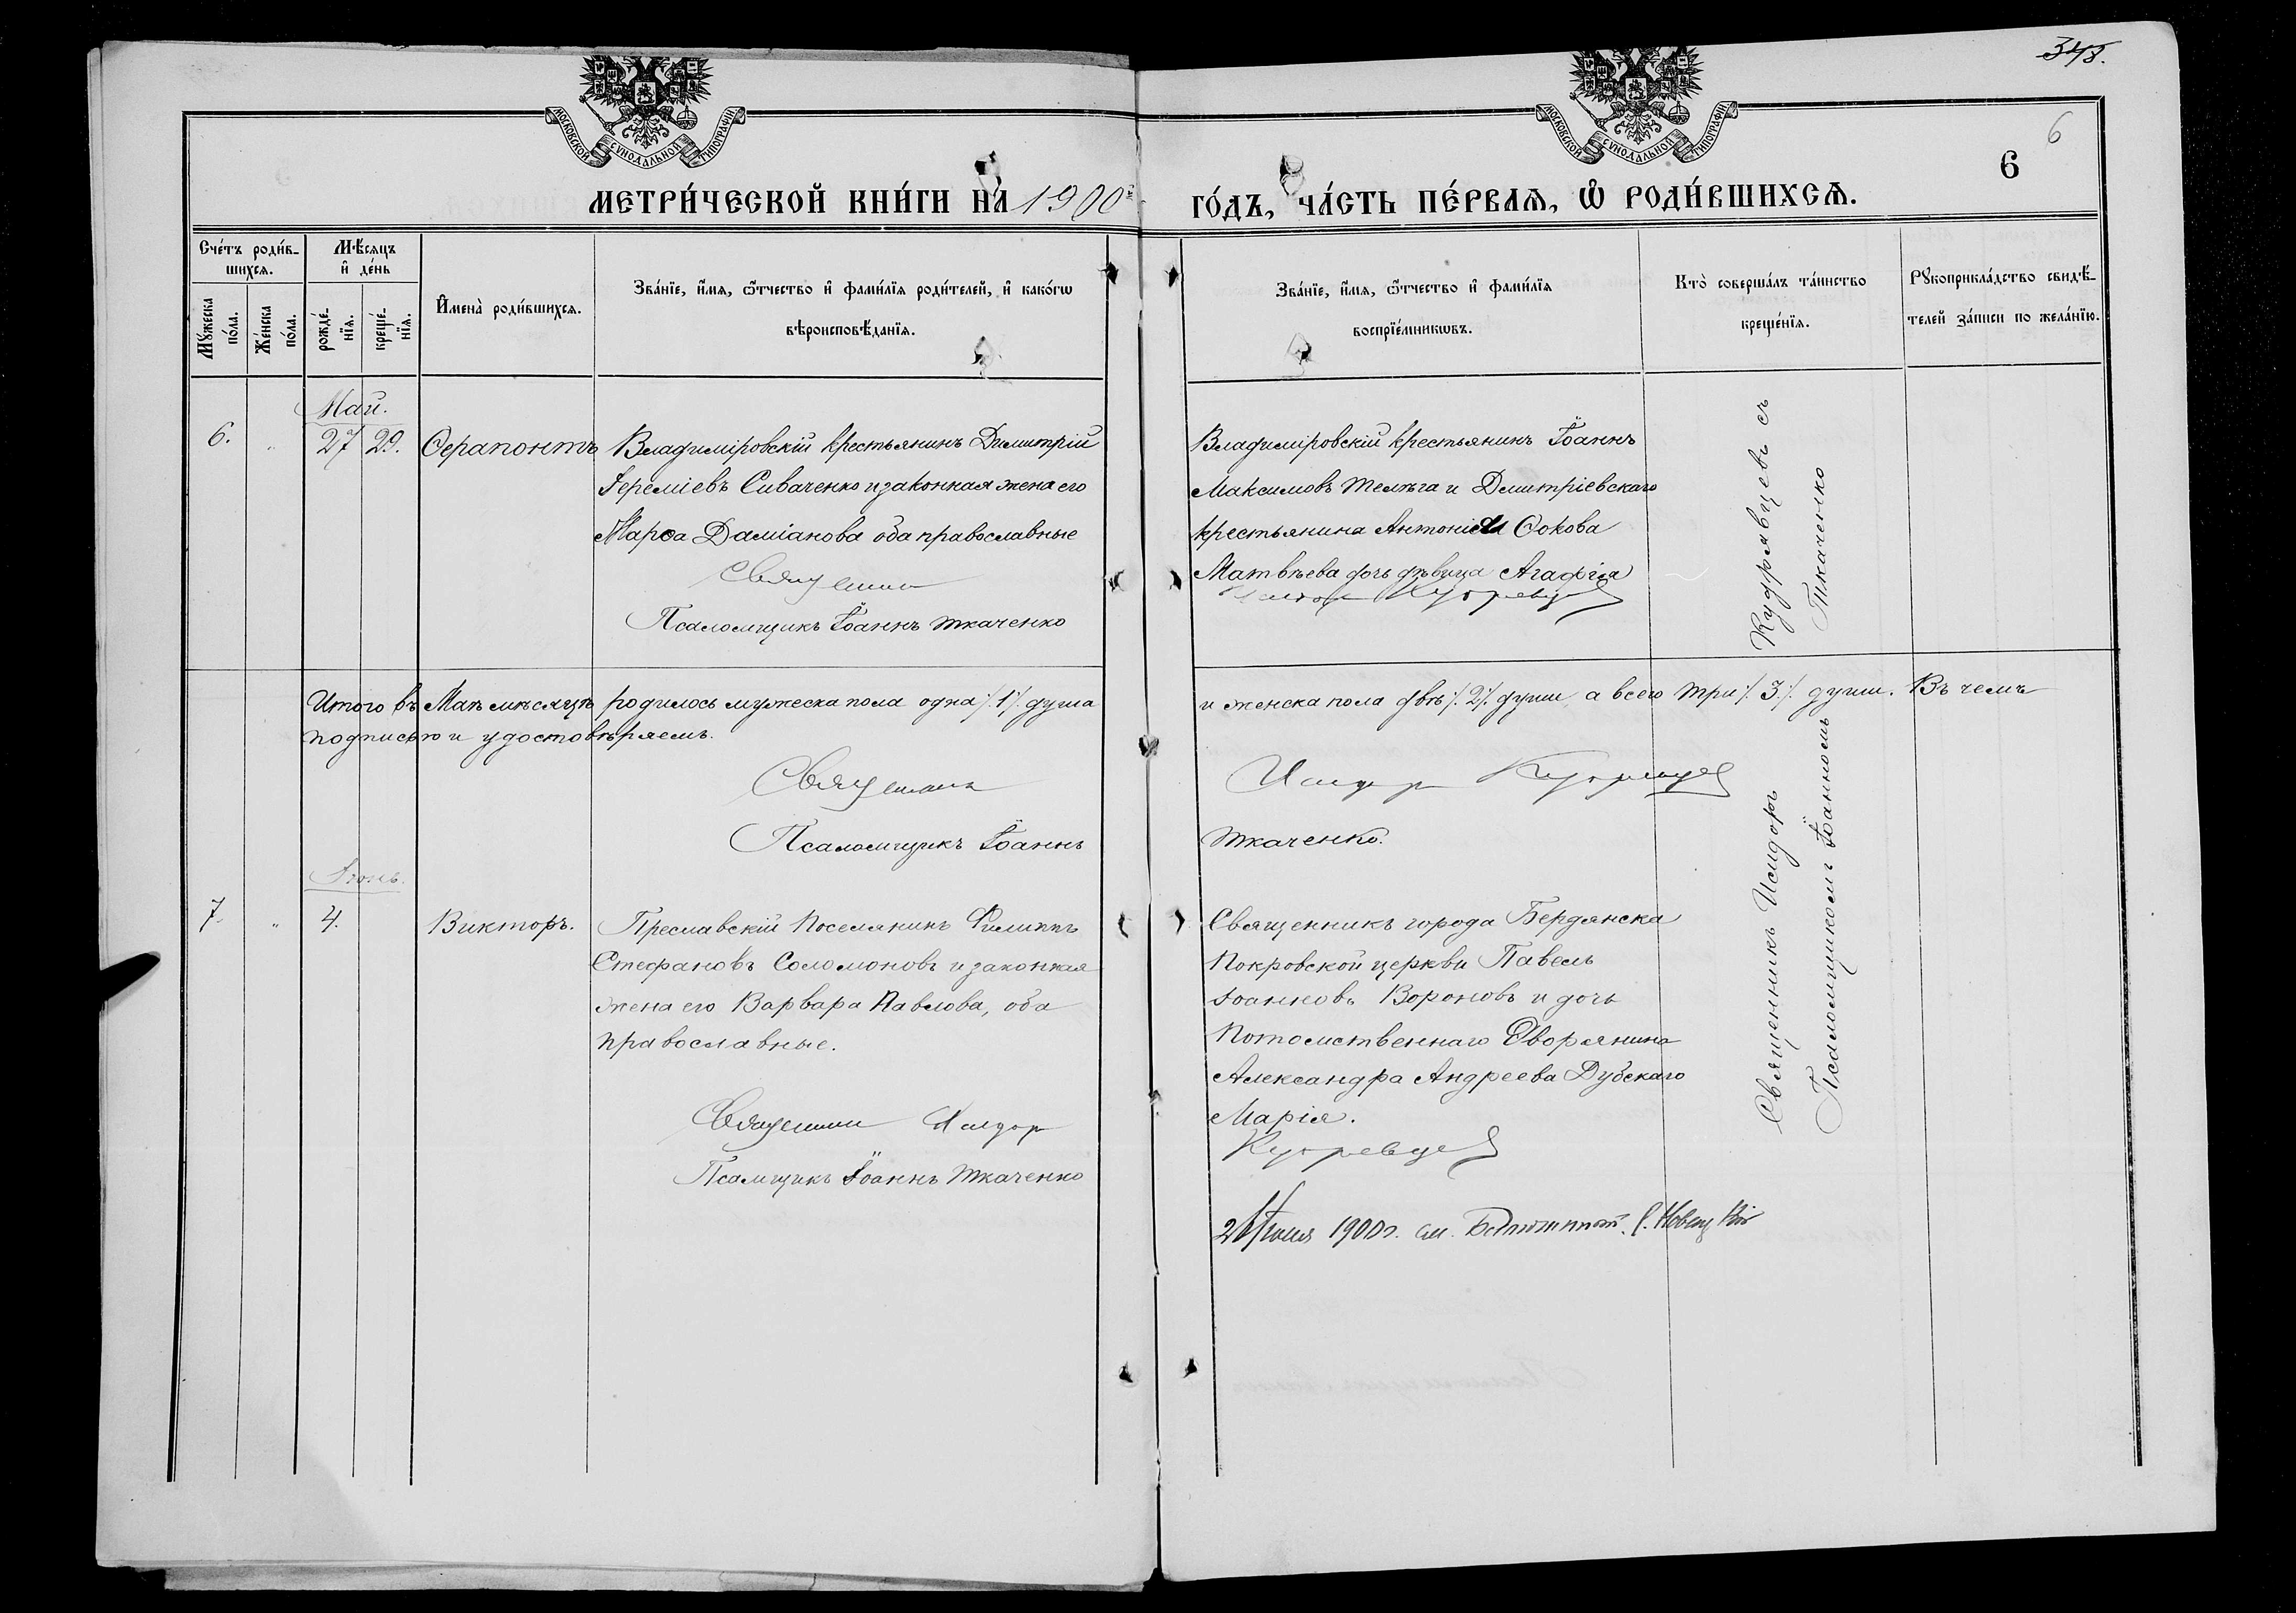 348.
6
6
МОСКОВСКОЙ СѴНОДАЛЬНОЙ ТИПОГРАФІИ
МОСКОВСКОЙ СѴНОДАЛЬНОЙ ТИПОГРАФІИ
МЕТРИ́ЧЕСКОЙ КНИ́ГИ НА 1900 ГО́ДЪ, ЧА́СТЬ ПЕ́РВАѦ, Ѡ҆ РОДИ́ВШИХСѦ.
Сче́тъ роди́в-
шихсѧ.
Мꙋ́жеска по́ла.
Же́нска по́ла.
Мѣ́сѧцъ
и҆ де́нь
рожде́-
нїѧ.
креще́-
нїѧ.
И҆мена̀ роди́вшихсѧ.
Зва́нїе, и҆́мѧ, ѻ҆́тчество и҆ фами́лїѧ роди́телей, и҆ како́гѡ
вѣроисповѣ́данїѧ.
Зва́нїе, и҆́мѧ, ѻ҆́тчество и҆ фами́лїѧ
воспрїе́мникѡвъ.
Кто̀ соверша́лъ та́инство
креще́нїѧ.
Рꙋкоприкла́дство свидѣ́-
телей за́писи по жела́нїю.
Май.
6. „ 27 29. Ѳерапонтъ
Владиміровскій крестьянинъ Димитрій
Іереміевъ Сиваченко и законная жена его
Марѳа Даміанова оба православные
Священник
Псаломщикъ Іоаннъ Ткаченко
Владиміровскій крестьянинъ Іоаннъ
Максимовъ Телѣга и Дмитріевскаго
крестьянина Антонія Ѳокова
Матвѣева дочь дѣвица Агафія
Исидор Кудрявцев
Итого въ Маѣ мѣсяцѣ родилось мужеска пола одна /.1/. душа и женска пола двѣ /.2/. души, а всего три /.3./. души. Въ чемъ
подписью и удостовѣряемъ.
Священник Исидор Кудрявцев
Псаломщикъ Іоаннъ Ткаченко.
Іюнь.
7. „ 4. Викторъ.
Преславскій Поселянинъ Филиппъ
Стефановъ Соломоновъ и законная
жена его Варвара Павлова, оба
православные.
Священник Исидор Кудрявцев
Псамщикъ Іоаннъ Ткаченко
Священникъ города Бердянска
Покровской церкви Павелъ
Іоанновъ Вороновъ и дочь
Потомственнаго Дворянина
Александра Андреева Дубскаго
Марія.
Священникъ Исидоръ Кудрявцевъ съ
Псаломщикомъ Іоанномъ Ткаченко
1900 г.